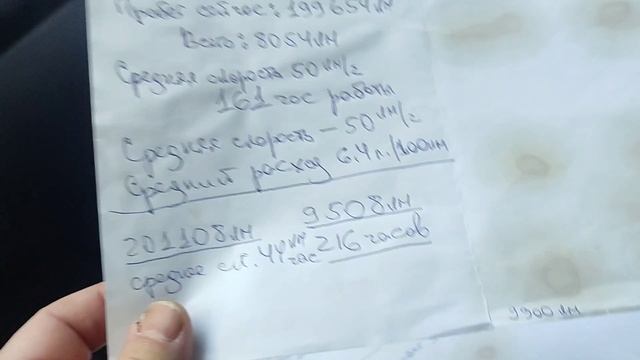 Пробег сейчас: 199654км
Всего: 8054км
Средняя скорость 50 км/г
161 час работы
Средняя скорость – 50 км/г
Средний расход 6.4 л./100км
201108км 9508км
средняя ск. 44 км/час 216 часов
9900км